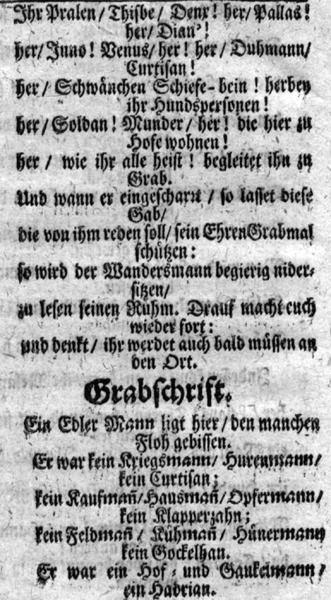 Ihr Pralen / Thisbe / Denx! her / Pallas!
her / Dian'!
her / Juno! Venus / her! her / Duhmann /
Curtisan!
her / Schwänchen Schiefe-bein! herbey
ihr Hundspersonen!
her / Soldan! Munder / her! die hier zu
Hofe wohnen!
her / wie ihr alle heist! begleitet ihn zu
Grab.
Und wann er eingescharrt / so lasset diese
Gab /
die von ihm reden soll / sein EhrenGrabmal
schützen:
so wird der Wandersmann begierig nider-
sitzen /
zu lesen seinen Ruhm. Drauf macht euch
wieder fort:
und denkt / ihr werdet auch bald müssen an
den Ort.
Grabschrift.
Ein Edler Mann ligt hier / den manchen
Floh gebissen.
Er war kein Kriegsmann / Hurenmann /
kein Curtisan;
kein Kaufmañ / Hausmañ / Opfermann /
kein Klapperzahn;
kein Feldmañ / Kühmañ / Hünermann
kein Gockelhan.
Er war ein Hof- und Gaukelmann /
ein Hadrian.